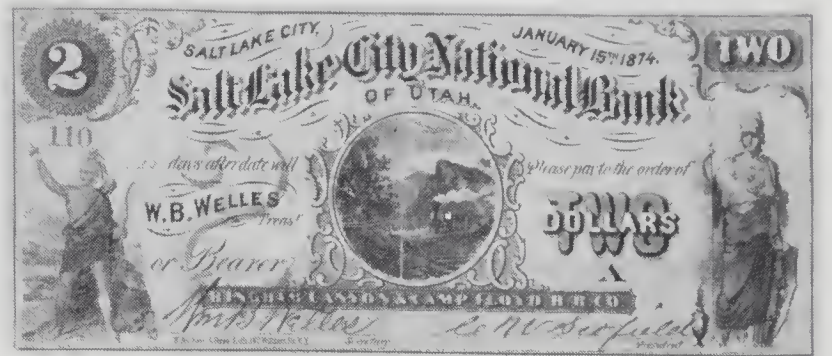 2
SALT LAKE CITY,
JANUARY 15TH 1874.
TWO
Salt Lake City National Bank
OF UTAH.
110
days after date will
Please pay to the order of
W.B. WELLES
Treasr
TWO
DOLLARS
or Bearer
A
BINGHAM CANYON & CAMP FLOYD R.R. CO.
Wm B Welles
C W Scofield
Secretary
President